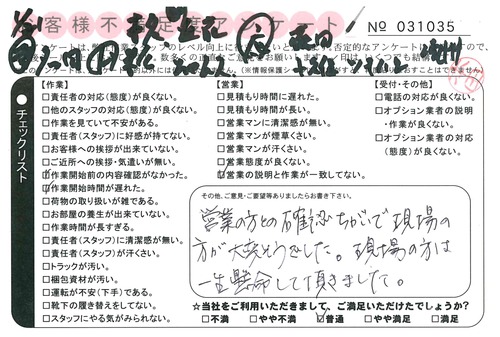 お客様不満足度アンケート
No 031035
チェックリスト
【作業】
□責任者の対応(態度)が良くない。
□他のスタッフの対応(態度)が良くない。
□作業を見ていて不安がある。
□責任者(スタッフ)に好感が持てない。
□お客様への挨拶が出来ていない。
□ご近所への挨拶・気遣いが無い。
☑作業開始前の内容確認がなかった。
☑作業開始時間が遅れた。
□荷物の取り扱いが雑である。
□お部屋の養生が出来ていない。
□作業時間が長すぎる。
□責任者(スタッフ)に清潔感が無い。
□責任者(スタッフ)が汗くさい。
□トラックが汚い。
□梱包資材が汚い。
□運転が不安(下手)である。
□靴下の履き替えをしてない。
□スタッフにやる気がみられない。
【営業】
□見積もり時間に遅れた。
□見積もり時間が長い。
□営業マンに清潔感が無い。
□営業マンが煙草くさい。
□営業マンが汗くさい。
□営業態度が良くない。
☑営業の説明と作業が一致してない。
【受付・その他】
□電話の対応が良くない。
□オプション業者の説明
・作業が良くない。
□オプション業者の対応
(態度)が良くない。
その他、ご意見・ご要望等ありましたらお書き下さい。
営業の方との確認ちがいで現場の
方が大変そうでした。現場の方は
一生懸命して頂きました。
☆当社をご利用いただきまして、ご満足いただけたでしょうか?
□不満 □やや不満 ☑普通 □やや満足 □満足